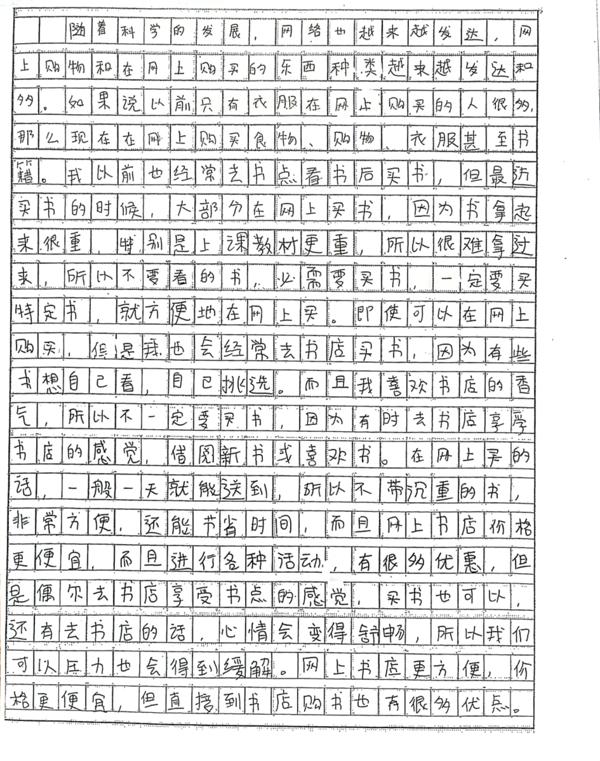 随着科学的发展，网络也越来越发达，网
上购物和在网上购买的东西种类越来越发达和
多。如果说以前只有衣服在网上购买的人很多，
那么现在在网上购买食物、购物、衣服甚至书
籍。我以前也经常去书点看书后买书，但最近
买书的时候，大部分在网上买书，因为书拿起
来很重，特别是上课教材更重，所以很难拿过
来，所以不要看的书，必需要买书，一定要买
特定书，就方便地在网上买。即使可以在网上
购买，但是我也会经常去书店买书，因为有些
书想自己看，自己挑选。而且我喜欢书店的香
气，所以不一定要买书，因为有时去书店享受
书店的感觉，借阅新书或喜欢书。在网上买的
话，一般一天就能送到，所以不带沉重的书，
非常方便，还能书省时间，而且网上书店价格
更便宜，而且进行各种活动，有很多优惠，但
是偶尔去书店享受书点的感觉，买书也可以，
还有去书店的话，心情会变得舒畅，所以我们
可以压力也会得到缓解。网上书店更方便，价
格更便宜，但直接到书店购书也有很多优点。